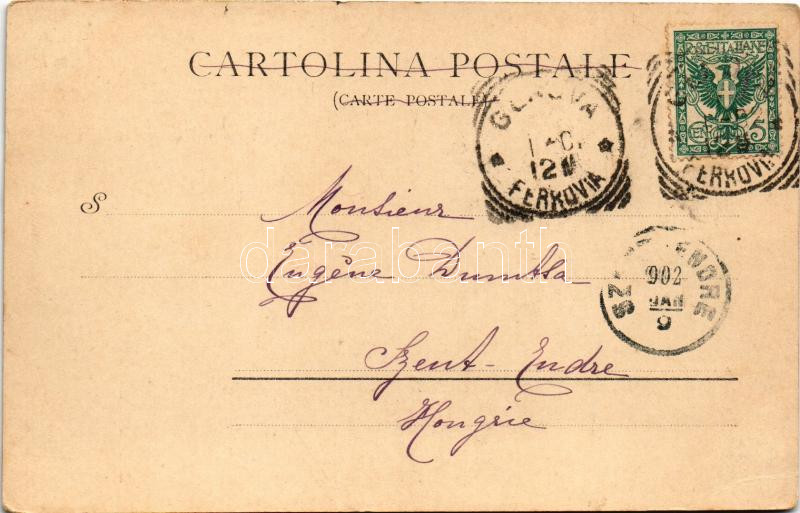 CARTOLINA POSTALE
(CARTE POSTALE)
POSTE ITALIANE
5
GENOVA
12 M
FERROVIA
FERROVIA
S
Monsieur
Eugène Dumtsa
Szent-Endre
Hongrie
SZENTENDRE
902
JAN
9
darabanth.com